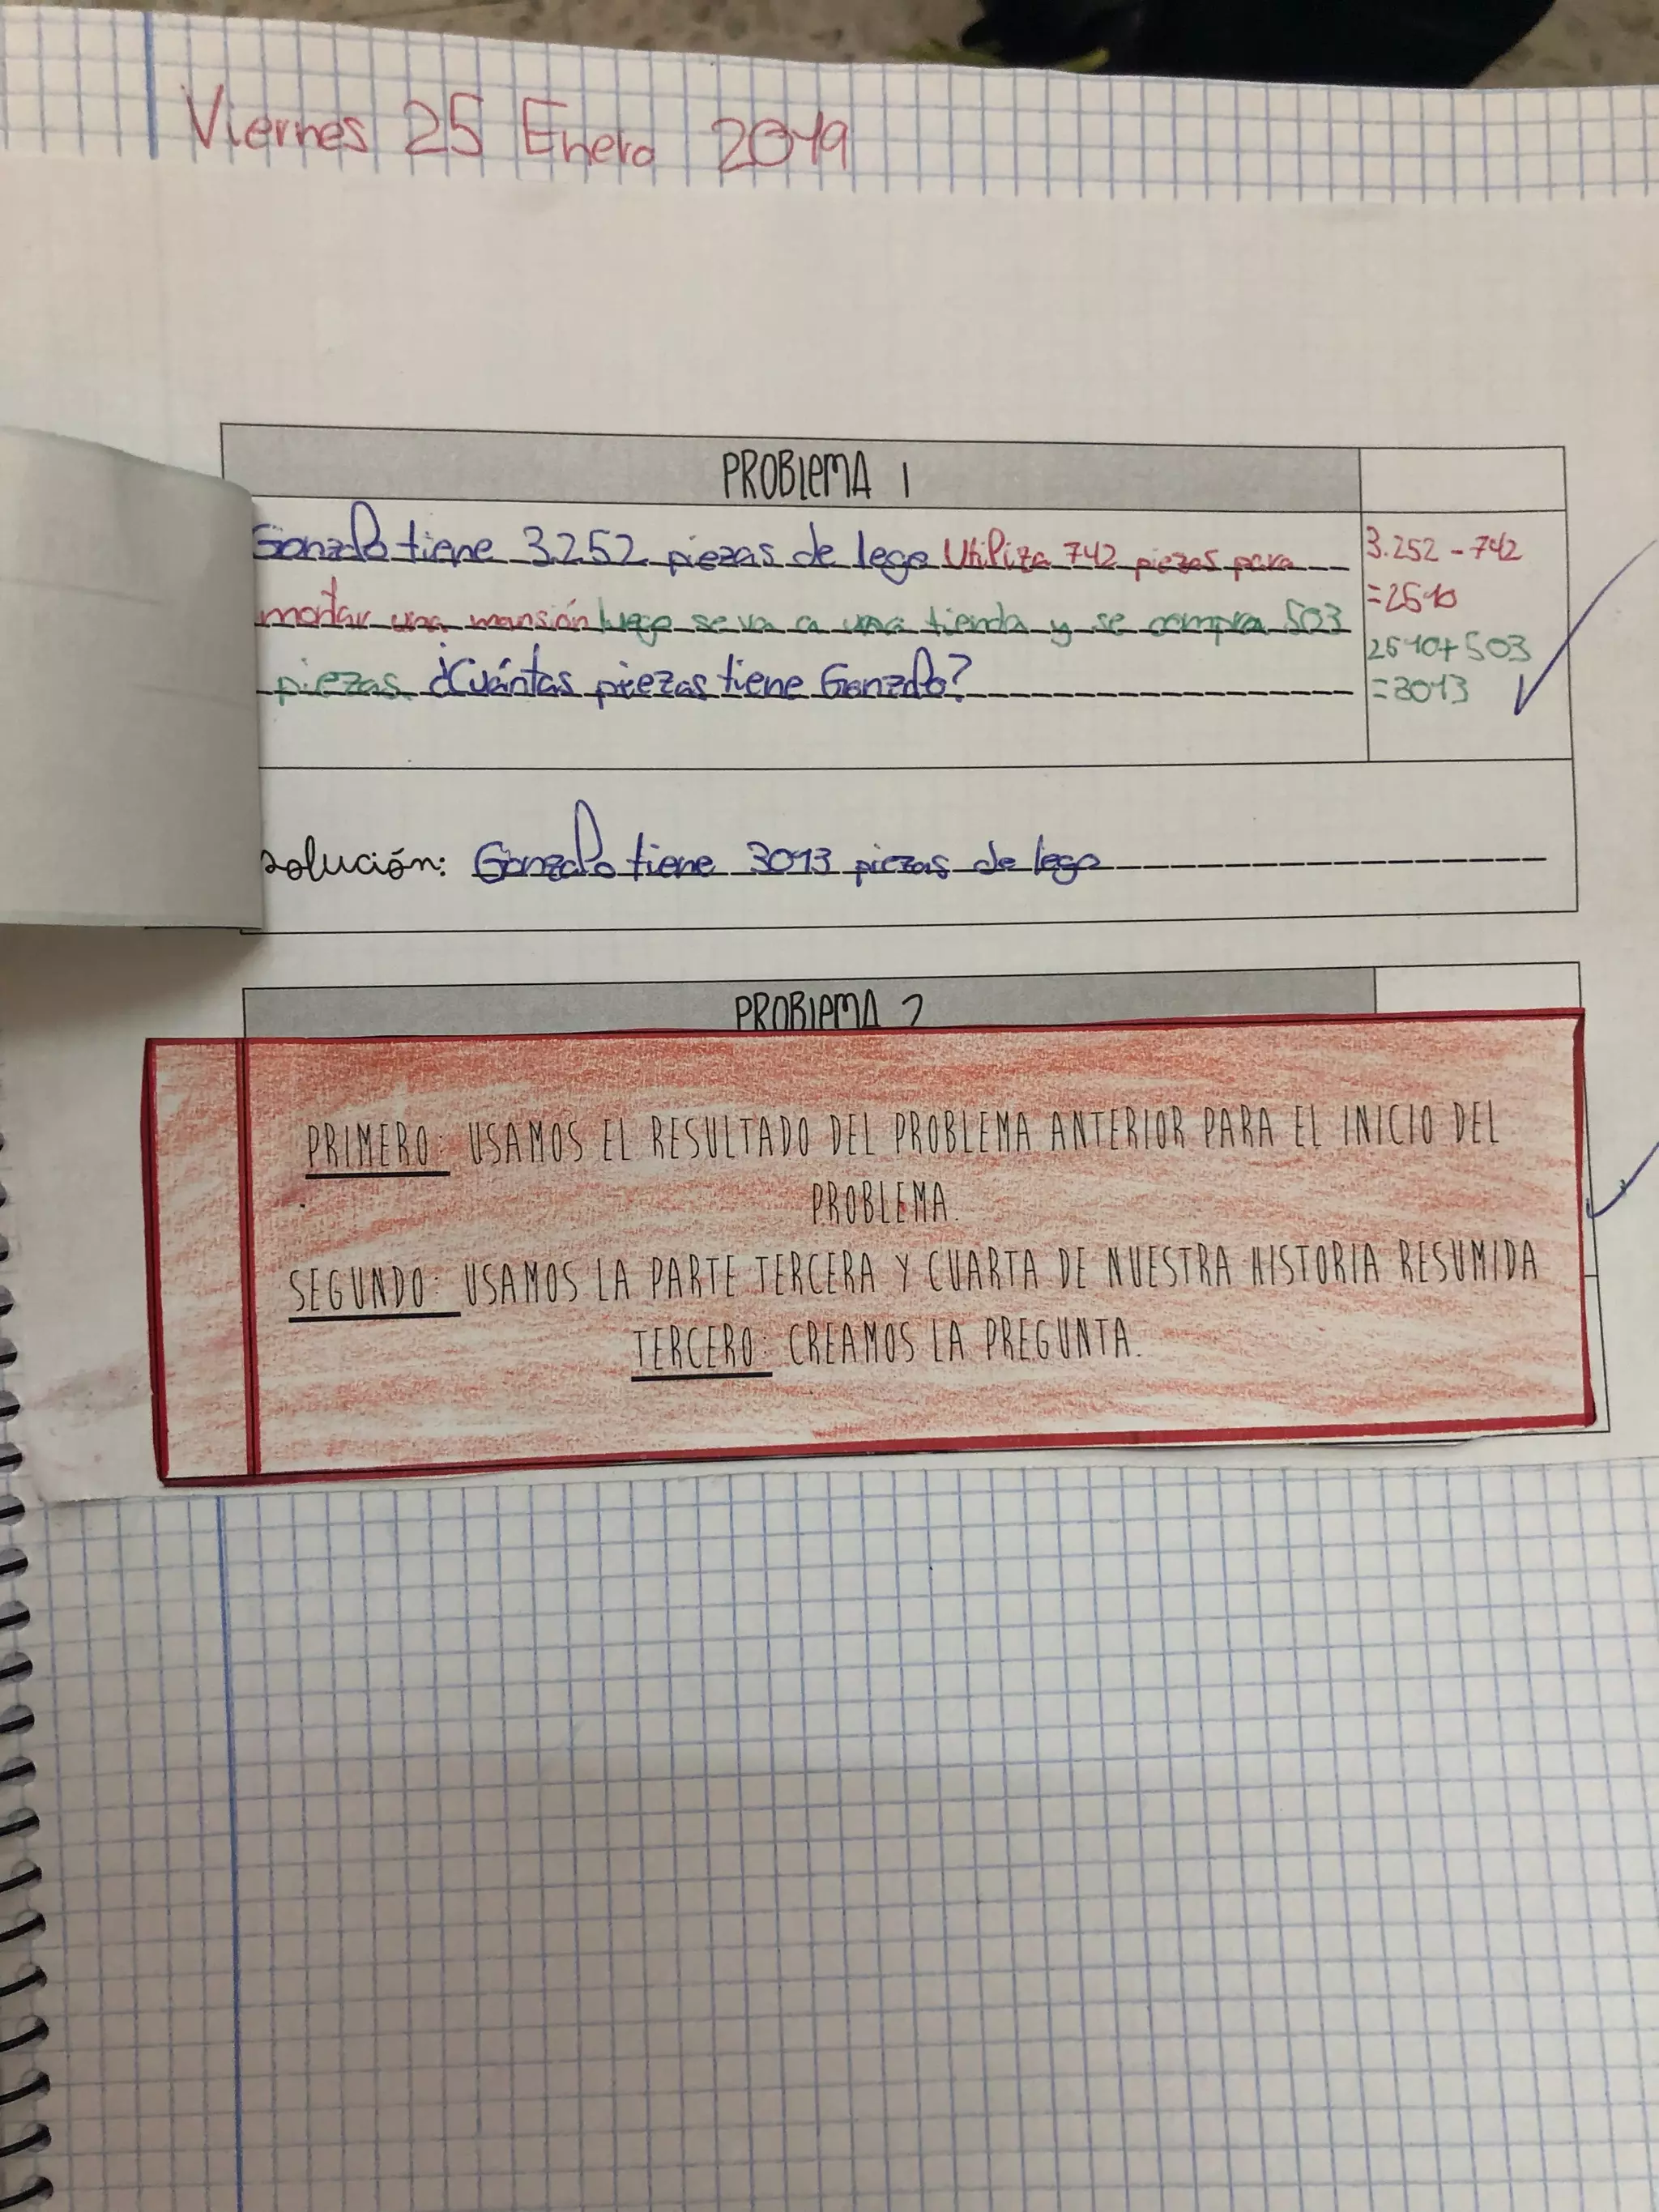 Viernes 25 Enero 2019
PROBLEMA 1
Gonzalo tiene 3.252 piezas de lego Utiliza 742 piezas para
montar una mansión luego se va a una tienda y se compra 503
piezas. ¿Cuántas piezas tiene Gonzalo?
3.252 - 742
=2510
2510+503
=3013
solución: Gonzalo tiene 3013 piezas de lego
PROBLEMA 2
PRIMERO: USAMOS EL RESULTADO DEL PROBLEMA ANTERIOR PARA EL INICIO DEL
PROBLEMA.
SEGUNDO: USAMOS LA PARTE TERCERA Y CUARTA DE NUESTRA HISTORIA RESUMIDA
TERCERO: CREAMOS LA PREGUNTA.